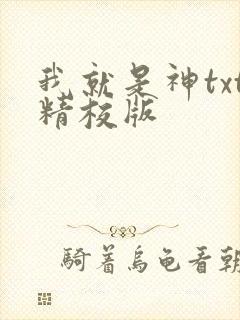 我就是神txt
精校版
騎着烏龜看朝